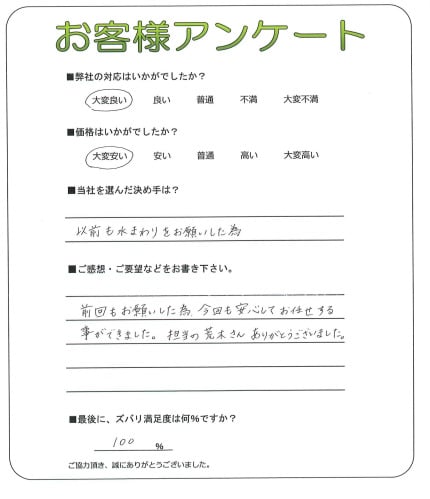 お客様アンケート
■弊社の対応はいかがでしたか？
大変良い 良い 普通 不満 大変不満
■価格はいかがでしたか？
大変安い 安い 普通 高い 大変高い
■当社を選んだ決め手は？
以前も水まわりをお願いした為
■ご感想・ご要望などをお書き下さい。
前回もお願いした為、今回も安心してお任せする
事ができました。担当の荒木さんありがとうございました。
■最後に、ズバリ満足度は何％ですか？
100 ％
ご協力頂き、誠にありがとうございました。